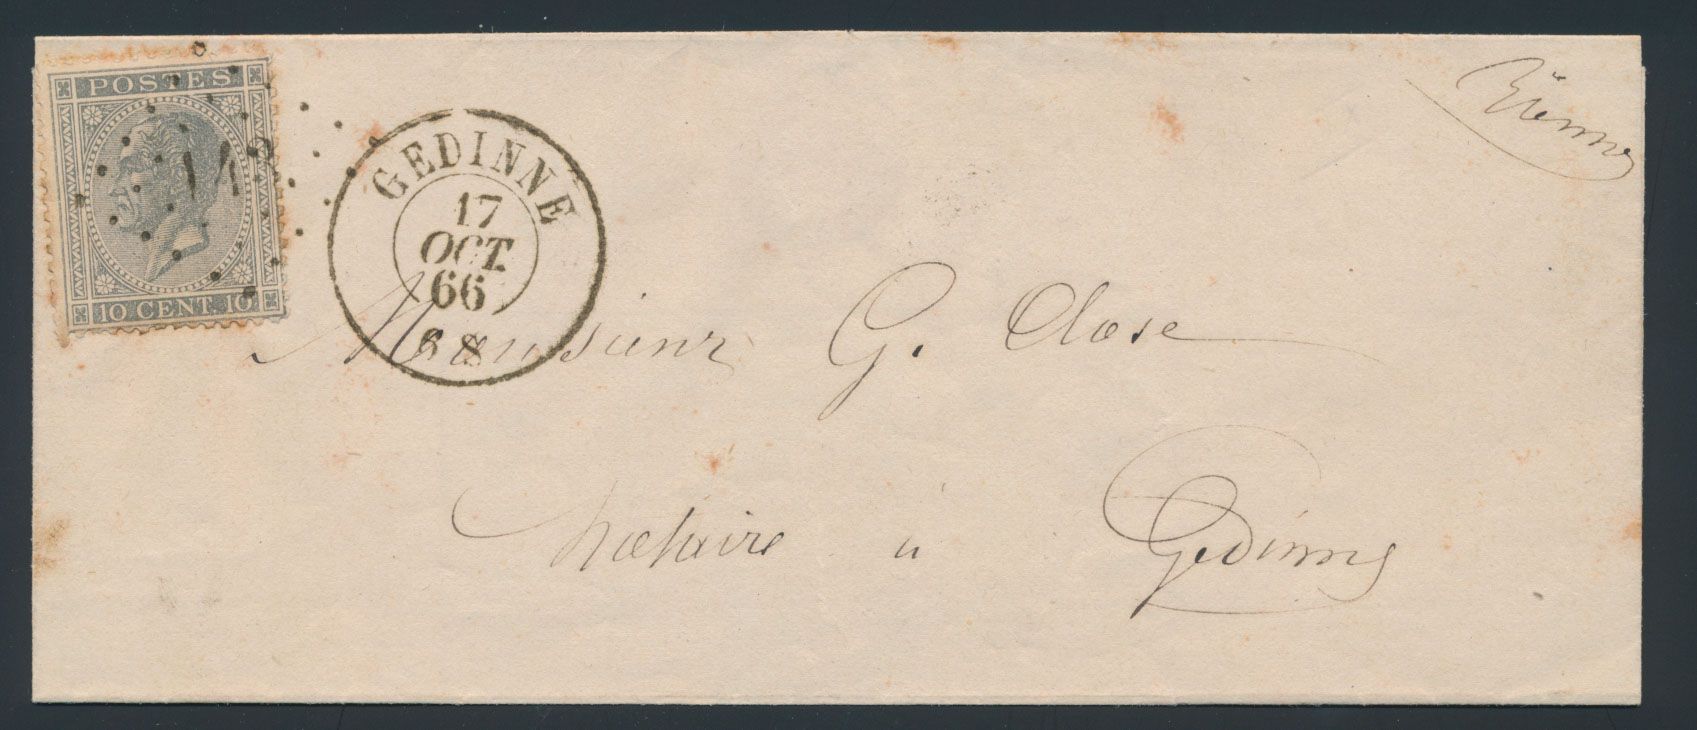 POSTES
10 CENT. 10
142
GEDINNE
17
OCT.
66
6 S
Monsieur G. Close
Notaire à Gedinne